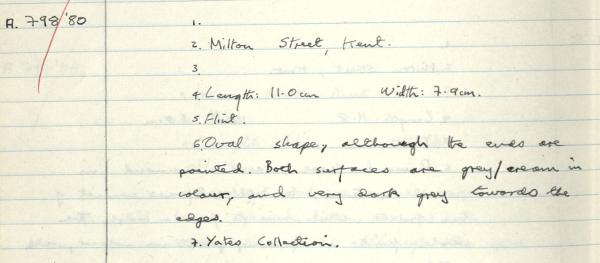 A. 798 '80
1.
2. Milton Street, Kent.
3.
4. Length: 11.0cm Width: 7.9cm.
5. Flint.
6. Oval shape, although the ends are
pointed. Both surfaces are grey/cream in
colour, and very dark grey towards the
edges.
7. Yates Collection.